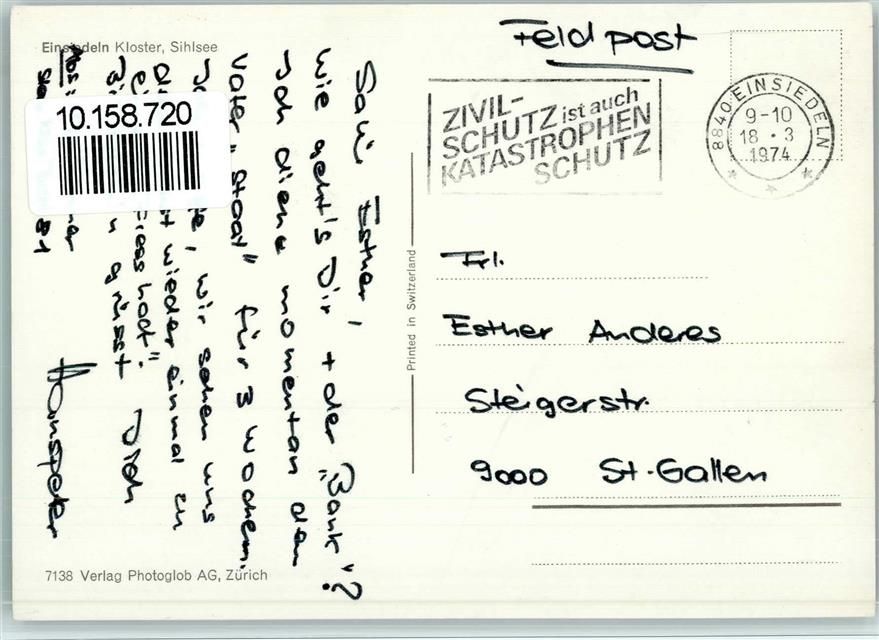 Einsiedeln Kloster, Sihlsee
10.158.720
Salü Esther,
wie geht's Dir + der „Bank"?
Ich diene momentan den
Vater „Staat" für 3 Wochen.
wir sehen uns
wieder einmal in
grüsst Dich
Hanspeter
Abs:
7138 Verlag Photoglob AG, Zürich
Printed in Switzerland
Feldpost
ZIVIL-
SCHUTZ ist auch
KATASTROPHEN
SCHUTZ
8840 EINSIEDELN
9-10
18 • 3
1974
Frl.
Esther Anderes
Steigerstr.
9000 St. Gallen